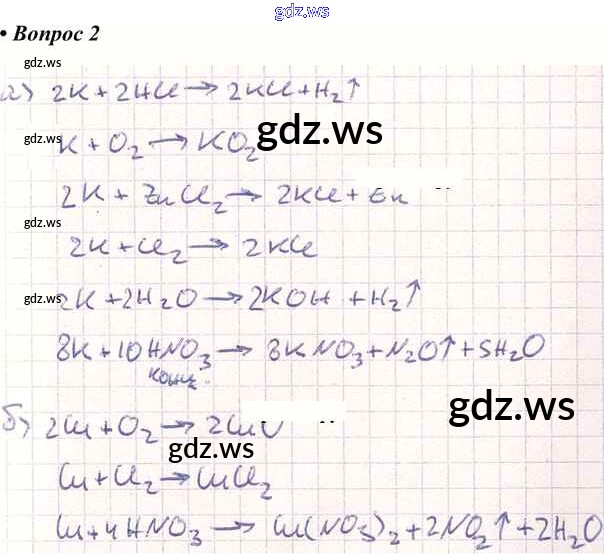 gdz.ws
• Вопрос 2
gdz.ws
а) 2K + 2HCl → 2KCl + H₂↑
gdz.ws
K + O₂ → KO₂
gdz.ws
2K + ZnCl₂ → 2KCl + Zn
gdz.ws
2K + Cl₂ → 2KCl
gdz.ws
2K + 2H₂O → 2KOH + H₂↑
8K + 10HNO₃ → 8KNO₃ + N₂O↑ + 5H₂O
конц.
gdz.ws
б) 2Cu + O₂ → 2CuO
gdz.ws
Cu + Cl₂ → CuCl₂
Cu + 4HNO₃ → Cu(NO₃)₂ + 2NO₂↑ + 2H₂O